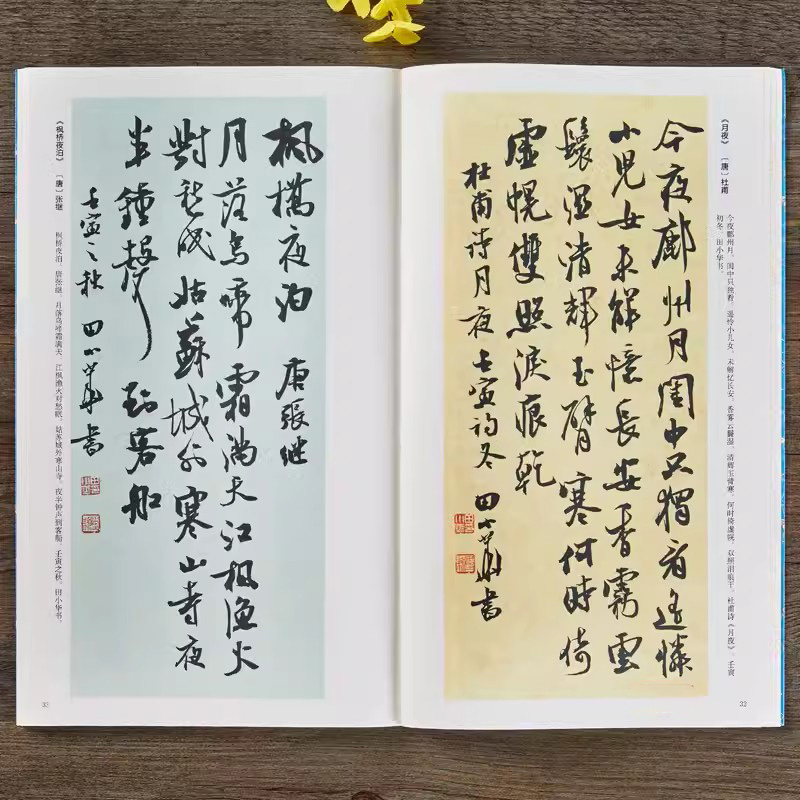 《月夜》 〔唐〕杜甫
今夜鄜州月，闺中只独看。遥怜小儿女，未解忆长安。香雾云鬟湿，清辉玉臂寒。何时倚虚幌，双照泪痕干。杜甫诗《月夜》，壬寅
初冬，田小华书。
今夜鄜州月閨中只獨看遙憐
小兒女未解憶長安香霧雲
鬟濕清輝玉臂寒何時倚
虛幌雙照淚痕乾
杜甫詩月夜 壬寅初冬 田小華書
32
楓橋夜泊 唐張继
月落烏啼霜滿天江楓漁火
對愁眠姑蘇城外寒山寺夜
半鐘聲到客船
壬寅之秋 田小華書
《枫桥夜泊》 〔唐〕张继
枫桥夜泊，唐张继。月落乌啼霜满天，江枫渔火对愁眠。姑苏城外寒山寺，夜半钟声到客船。壬寅之秋，田小华书。
33